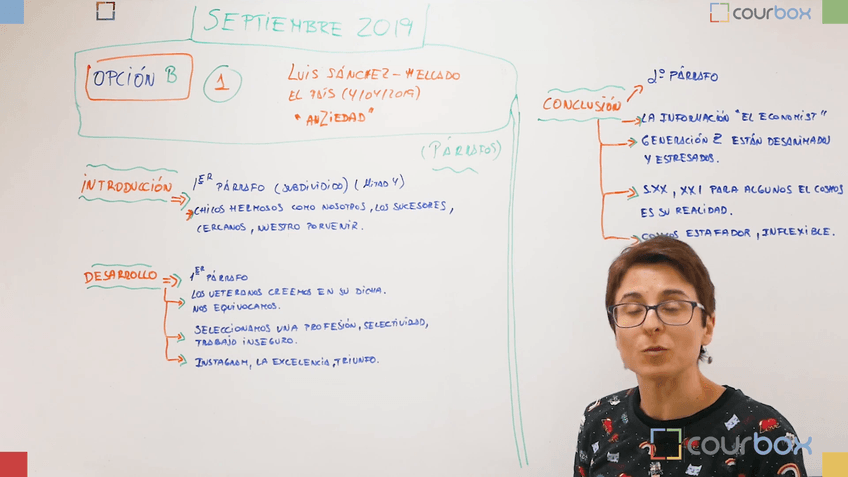 courbox
courbox
SEPTIEMBRE 2019
OPCIÓN B
1
LUIS SÁNCHEZ-MELLADO
EL PAÍS (4/04/2019)
"ANZIEDAD"
(PÁRRAFOS)
INTRODUCCIÓN
1ER PÁRRAFO (SUBDIVIDIDO)
CHICOS HERMOSOS COMO NOSOTROS, LOS SUCESORES,
CERCANOS, NUESTRO PORVENIR.
DESARROLLO
1ER PÁRRAFO
LOS VETERANOS CREEMOS EN SU DICHA.
NOS EQUIVOCAMOS.
SELECCIONAMOS UNA PROFESIÓN, SELECTIVIDAD,
TRABAJO INSEGURO.
INSTAGRAM, LA EXCELENCIA, TRIUNFO.
CONCLUSIÓN
2º PÁRRAFO
LA INFORMACIÓN "EL ECONOMIST"
GENERACIÓN Z ESTÁN DESANIMADOS
Y ESTRESADOS.
S.XX, XXI PARA ALGUNOS EL COSMOS
ES SU REALIDAD.
COSMOS ESTAFADOR, INFLEXIBLE.
courbox